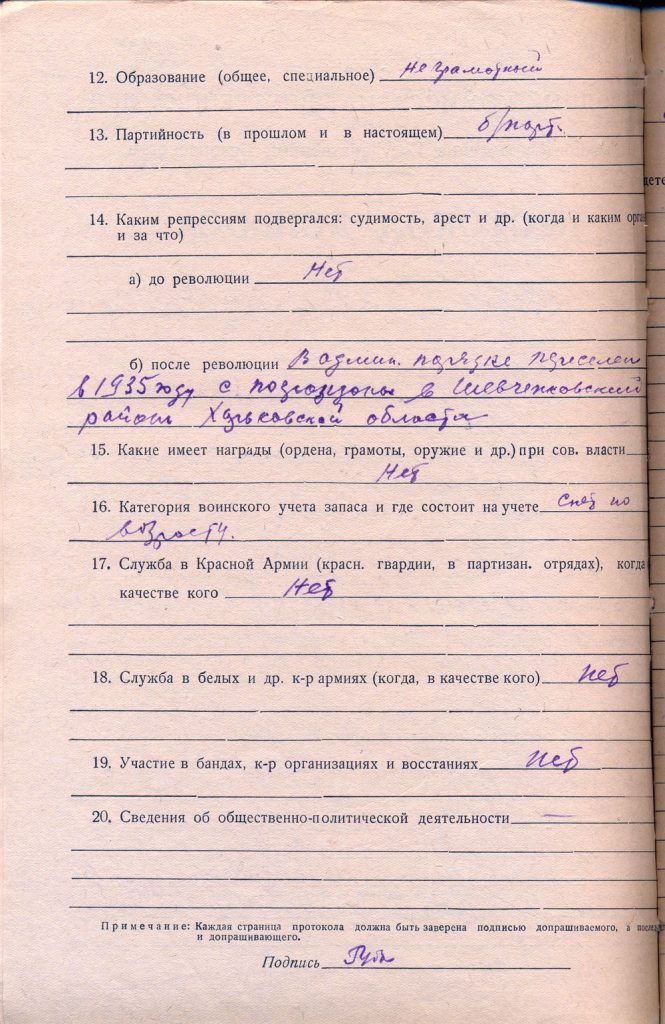 12. Образование (общее, специальное) Не грамотный
13. Партийность (в прошлом и в настоящем) б/парт.
дете
14. Каким репрессиям подвергался: судимость, арест и др. (когда и каким орга
и за что)
а) до революции Нет
б) после революции В админ. порядке переселен
в 1935 году с погранзоны в Шевченковский
район Харьковской области
15. Какие имеет награды (ордена, грамоты, оружие и др.) при сов. власти
Нет
16. Категория воинского учета запаса и где состоит на учете Снят по
возрасту.
17. Служба в Красной Армии (красн. гвардии, в партизан. отрядах), когда
качестве кого Нет
18. Служба в белых и др. к-р армиях (когда, в качестве кого) Нет
19. Участие в бандах, к-р организациях и восстаниях Нет
20. Сведения об общественно-политической деятельности —
Примечание: Каждая страница протокола должна быть заверена подписью допрашиваемого, а
и допрашивающего.
Подпись